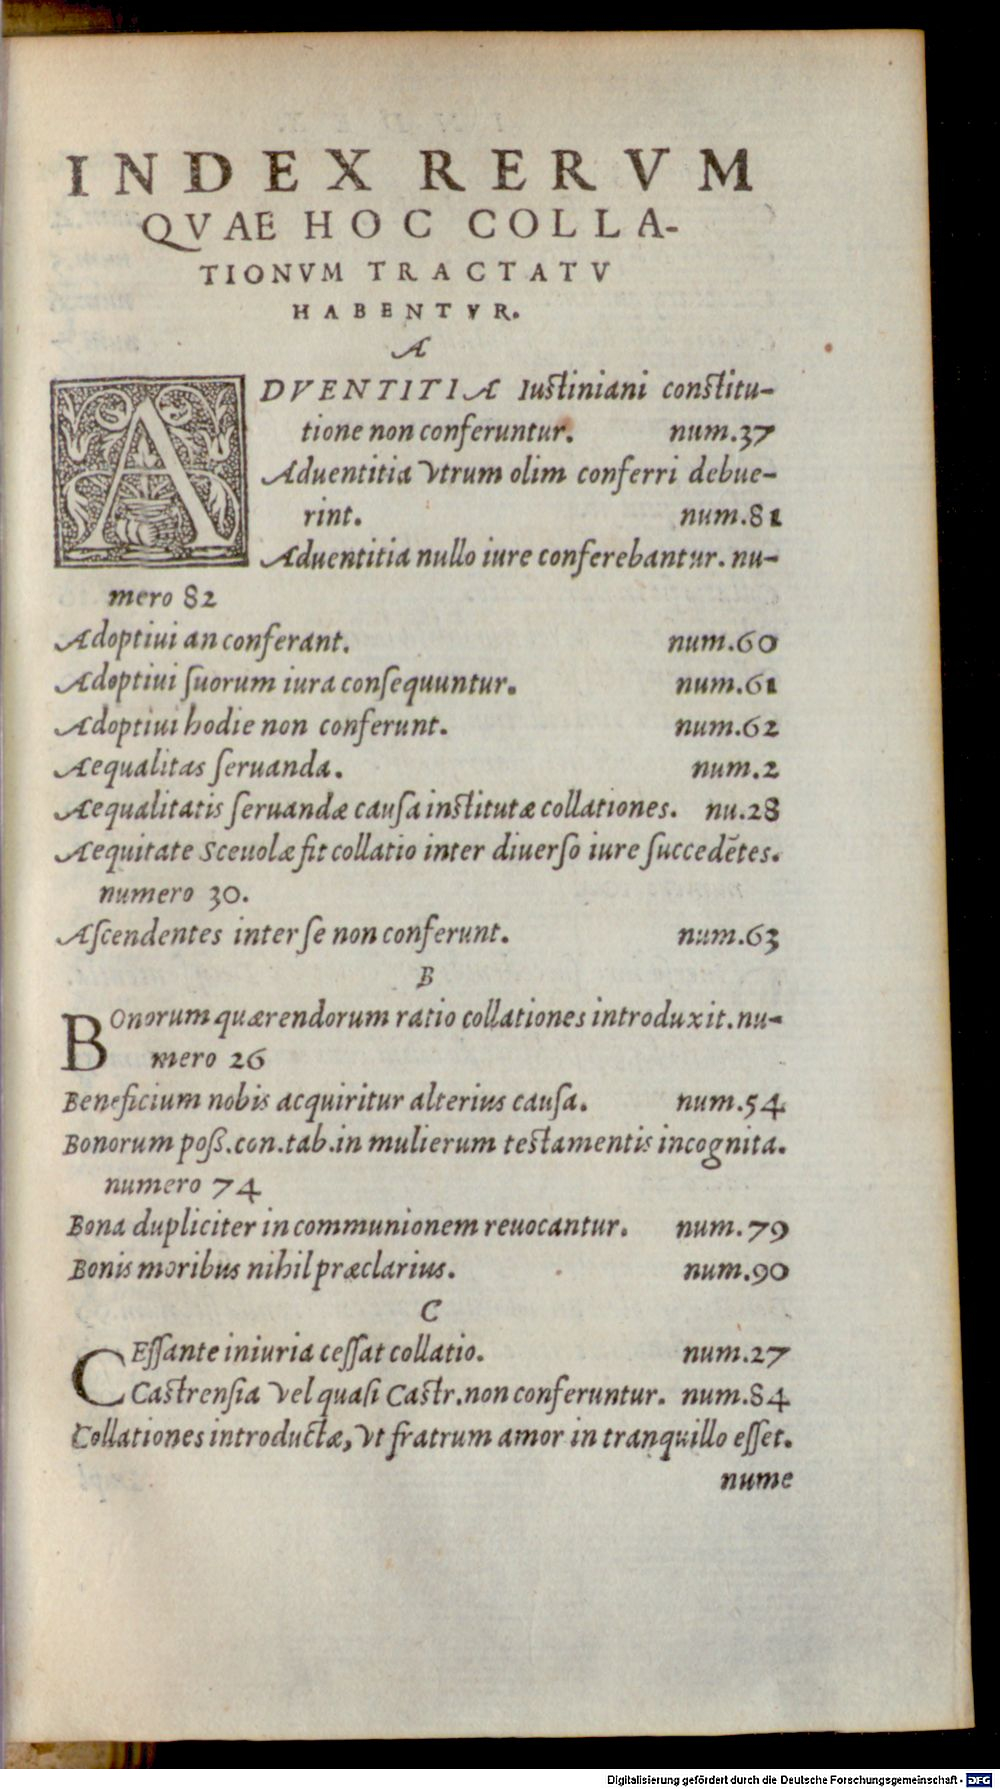 INDEX RERVM
QVAE HOC COLLA-
TIONVM TRACTATV
HABENTVR.
A
ADVENTITIA Iustiniani constitu-
tione non conferuntur. num.37
Aduentitia vtrum olim conferri debue-
rint. num.81
Aduentitia nullo iure conferebantur. nu-
mero 82
Adoptiui an conferant. num.60
Adoptiui ſuorum iura conſequuntur. num.61
Adoptiui hodie non conferunt. num.62
Aequalitas ſeruanda. num.2
Aequalitatis ſeruandæ cauſa institutæ collationes. nu.28
Aequitate Sceuolæ fit collatio inter diuerſo iure ſuccedētes.
numero 30.
Aſcendentes inter ſe non conferunt. num.63
B
BOnorum quærendorum ratio collationes introduxit. nu-
mero 26
Beneficium nobis acquiritur alterius cauſa. num.54
Bonorum poß.con.tab.in mulierum testamentis incognita.
numero 74
Bona dupliciter in communionem reuocantur. num.79
Bonis moribus nihil præclarius. num.90
C
CEſſante iniuria ceſſat collatio. num.27
Castrenſia vel quaſi Castr.non conferuntur. num.84
Collationes introductæ, vt fratrum amor in tranquillo eſſet.
nume
Digitalisierung gefördert durch die Deutsche Forschungsgemeinschaft - DFG